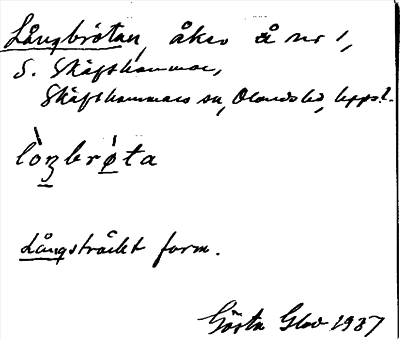 Långbråtan, åker å nr 1,
S. Skäfthammar,
Skäfthammars sn, Olands hd, Uppl.
lòŋbrøta
Långsträckt form.
Gösta Glad 1937